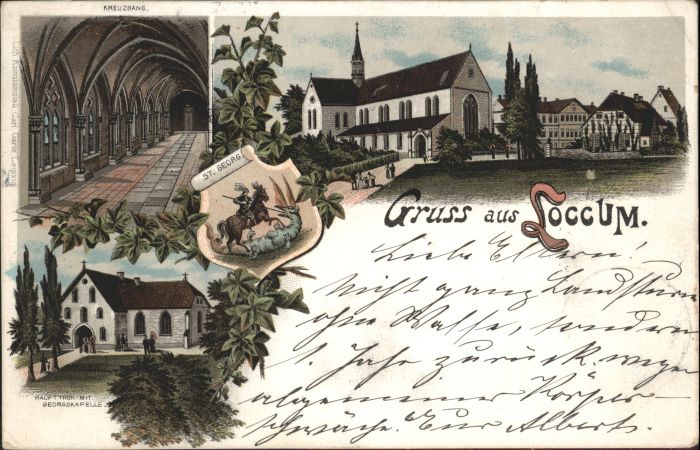 KREUZGANG.
Lith. Kunstanstalt Carl Garte Leipzig
ST. GEORG
Gruss aus LOCCUM.
Liebe Eltern!
Nicht ganz Landsturm
ohne Waffe, sondern
1 Jahr zurück wegen
allgemeiner Körper
schwäche. Eur Albert.
HAUPTTHOR MIT
GEORGSKAPELLE.